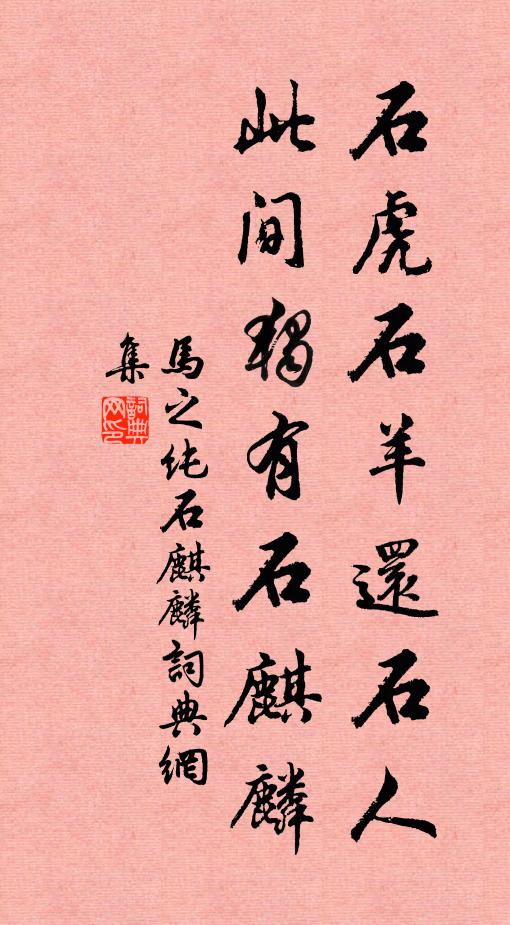 石虎石羊還石人
此間獨有石麒麟
馬之純石麒麟詞典網
集
詞典網印